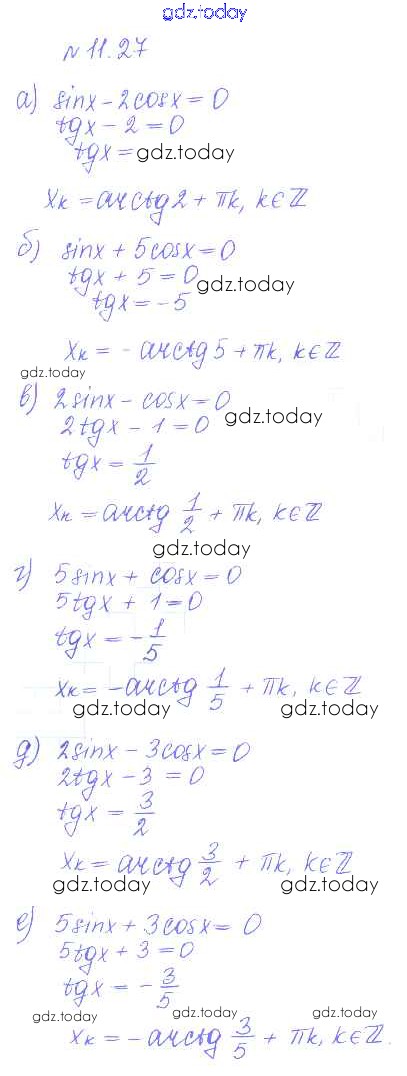 gdz.today
№ 11.27
а) sinx - 2cosx = 0
tgx - 2 = 0
tgx = gdz.today
xₖ = arctg2 + πk, k∈ℤ
б) sinx + 5cosx = 0
tgx + 5 = 0 gdz.today
tgx = -5
xₖ = - arctg5 + πk, k∈ℤ
gdz.today
в) 2sinx - cosx = 0
gdz.today
2tgx - 1 = 0
tgx = 1/2
xₖ = arctg 1/2 + πk, k∈ℤ
gdz.today
г) 5sinx + cosx = 0
5tgx + 1 = 0
tgx = -1/5
xₖ = -arctg 1/5 + πk, k∈ℤ
gdz.today gdz.today
д) 2sinx - 3cosx = 0
2tgx - 3 = 0
tgx = 3/2
xₖ = arctg 3/2 + πk, k∈ℤ
gdz.today gdz.today
е) 5sinx + 3cosx = 0
5tgx + 3 = 0
tgx = - 3/5
gdz.today gdz.today gdz.today
xₖ = -arctg 3/5 + πk, k∈ℤ.